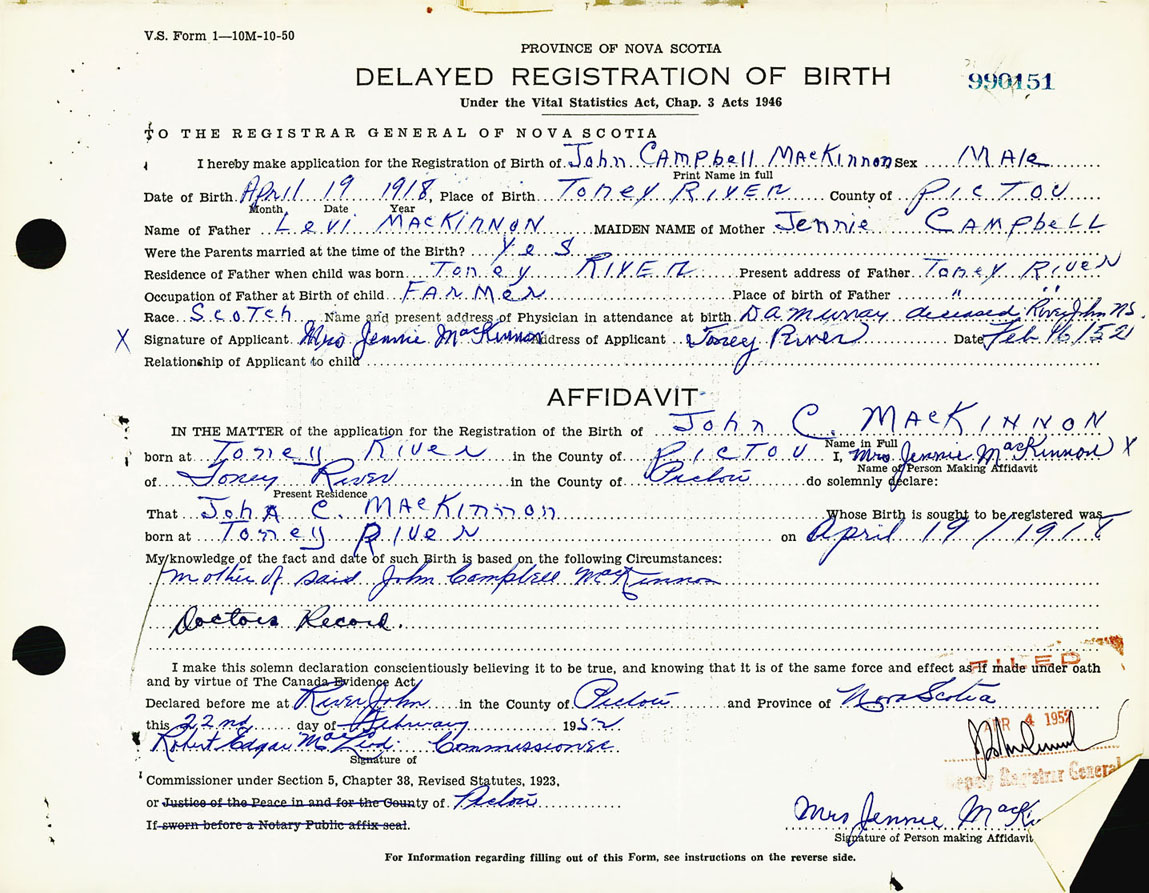 V.S. Form 1—10M-10-50
PROVINCE OF NOVA SCOTIA
DELAYED REGISTRATION OF BIRTH
990151
Under the Vital Statistics Act, Chap. 3 Acts 1946
TO THE REGISTRAR GENERAL OF NOVA SCOTIA
I hereby make application for the Registration of Birth of John Campbell MacKinnon Sex Male
Print Name in full
Date of Birth April 19 1918, Place of Birth Toney River County of Pictou
Month Date Year
Name of Father Levi MacKinnon MAIDEN NAME of Mother Jennie Campbell
Were the Parents married at the time of the Birth? Yes
Residence of Father when child was born Toney River Present address of Father Toney River
Occupation of Father at Birth of child Farmer Place of birth of Father " "
Race Scotch Name and present address of Physician in attendance at birth DA Murray deceased River John NS.
X Signature of Applicant Mrs Jennie MacKinnon Address of Applicant Toney River Date Feb 16/52
Relationship of Applicant to child
AFFIDAVIT
IN THE MATTER of the application for the Registration of the Birth of John C. MacKinnon
Name in Full
born at Toney River in the County of Pictou I, Mrs Jennie MacKinnon X
Name of Person Making Affidavit
of Toney River in the County of Pictou do solemnly declare:
Present Residence
That John C. MacKinnon Whose Birth is sought to be registered was
born at Toney River on April 19/1918
My knowledge of the fact and date of such Birth is based on the following Circumstances:
Mother of said John Campbell MacKinnon
Doctors Record.
I make this solemn declaration conscientiously believing it to be true, and knowing that it is of the same force and effect as if made under oath
FILED
and by virtue of The Canada Evidence Act
Declared before me at River John in the County of Pictou and Province of Nova Scotia
this 22nd day of February 1952
APR 4 1952
Robert Edgar MacLeod Commissioner
Signature of
Deputy Registrar General
Commissioner under Section 5, Chapter 38, Revised Statutes, 1923,
or Justice of the Peace in and for the County of Pictou
If sworn before a Notary Public affix seal.
Mrs Jennie MacKi
Signature of Person making Affidavit
For Information regarding filling out of this Form, see instructions on the reverse side.